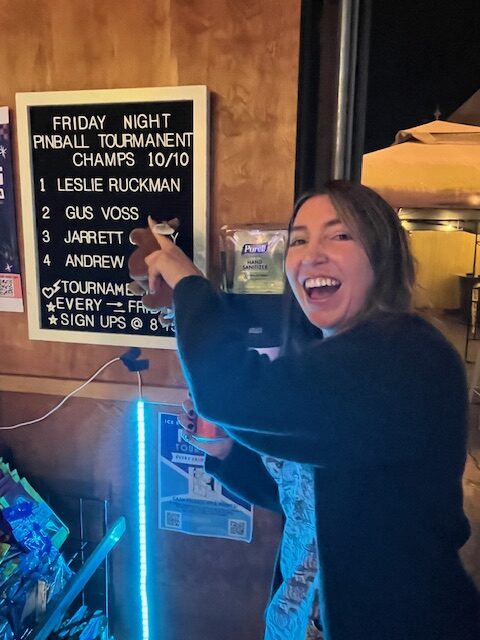 FRIDAY NIGHT
PINBALL TOURMANENT
CHAMPS 10/10
1 LESLIE RUCKMAN
2 GUS VOSS
3 JARRETT
4 ANDREW
EVERY → FRI
SIGN UPS @ 8
Purell
HAND
SANITIZER